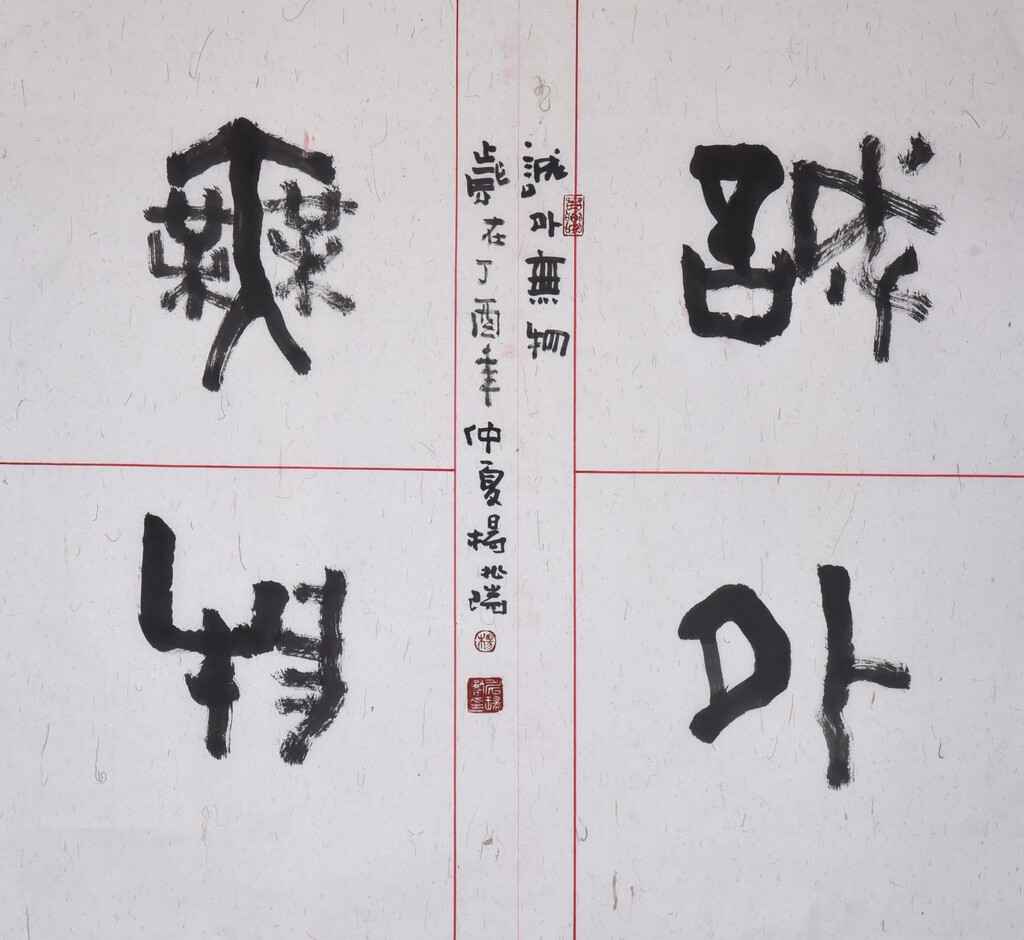 誠外
無物
誠外無物
歲在丁酉年仲夏楊兆瑞
楊